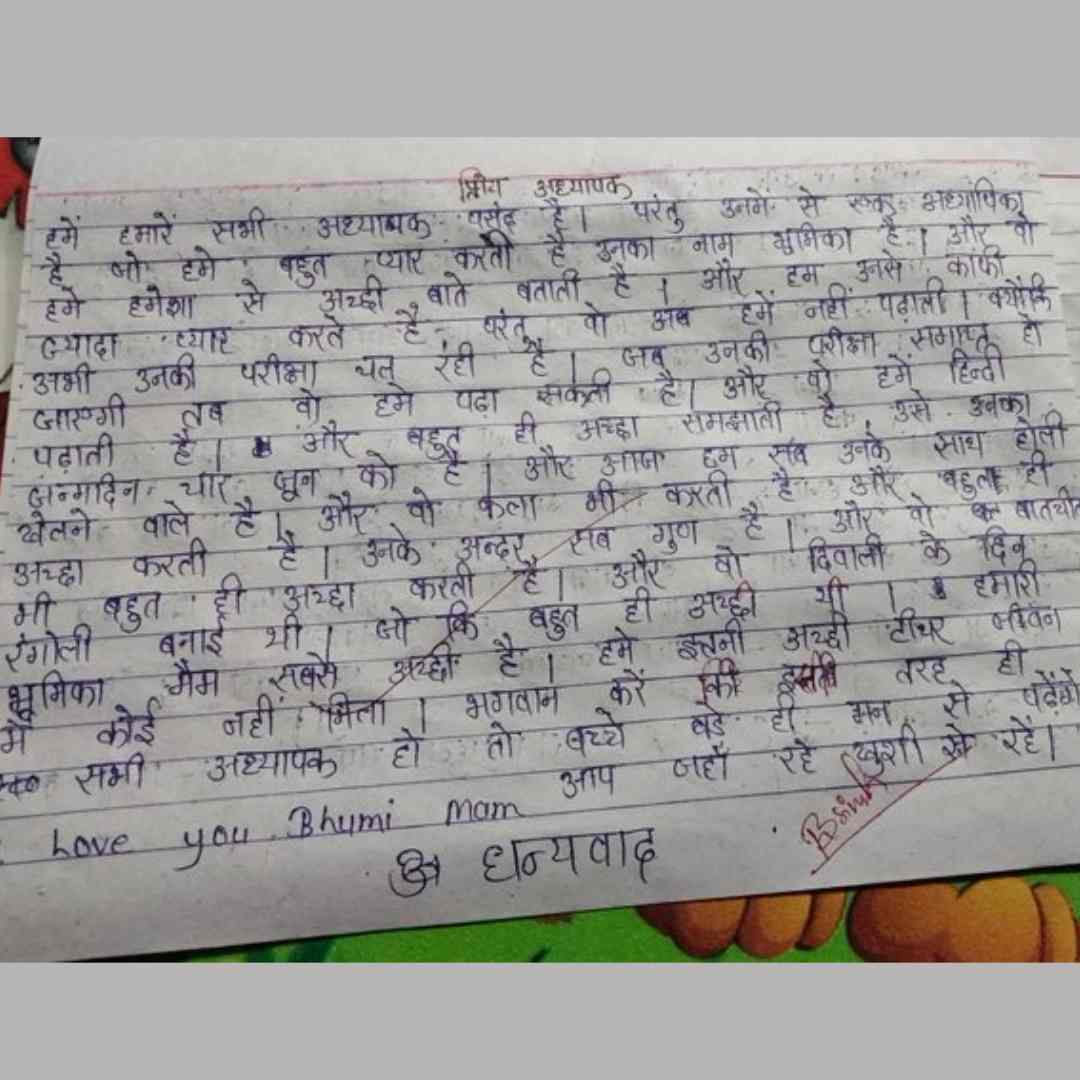 प्रिय अध्यापक
हमें हमारें सभी अध्यापक पसंद है। परंतु उनमें से एक अध्यापिका
है जो हमे बहुत प्यार करती है उनका नाम भुमिका है। और वो
हमे हमेशा से अच्छी बाते बताती है। और हम उनसे काफी
ज्यादा प्यार करते है परंतु वो अब हमें नहीं पढ़ाती। क्योंकि
अभी उनकी परीक्षा चल रही है। जब उनकी परीक्षा समाप्त हो
जाएगी तब वो हमे पढ़ा सकती है। और वो हमें हिन्दी
पढ़ाती है। और बहुत ही अच्छा समझाती है उसे उनका
जन्मदिन चार जून को है। और आज हम सब उनके साथ होली
खेलने वाले है। और वो कला भी करती है और बहुत ही
अच्छा करती है। उनके अन्दर सब गुण है। और वो बातचीत
भी बहुत ही अच्छा करती है। और वो दिवाली के दिन
रंगोली बनाई थी। जो कि बहुत ही अच्छी थी। हमारी
भूमिका मैम सबसे अच्छी है। हमे इतनी अच्छी टीचर जीवन
में कोई नहीं मिला। भगवान करें की इसी तरह ही
सभी अध्यापक हो तो बच्चे बड़े ही मन से पढ़ेंगे
आप जहाँ रहे खुशी से रहें।
Love you Bhumi Mam
धन्यवाद